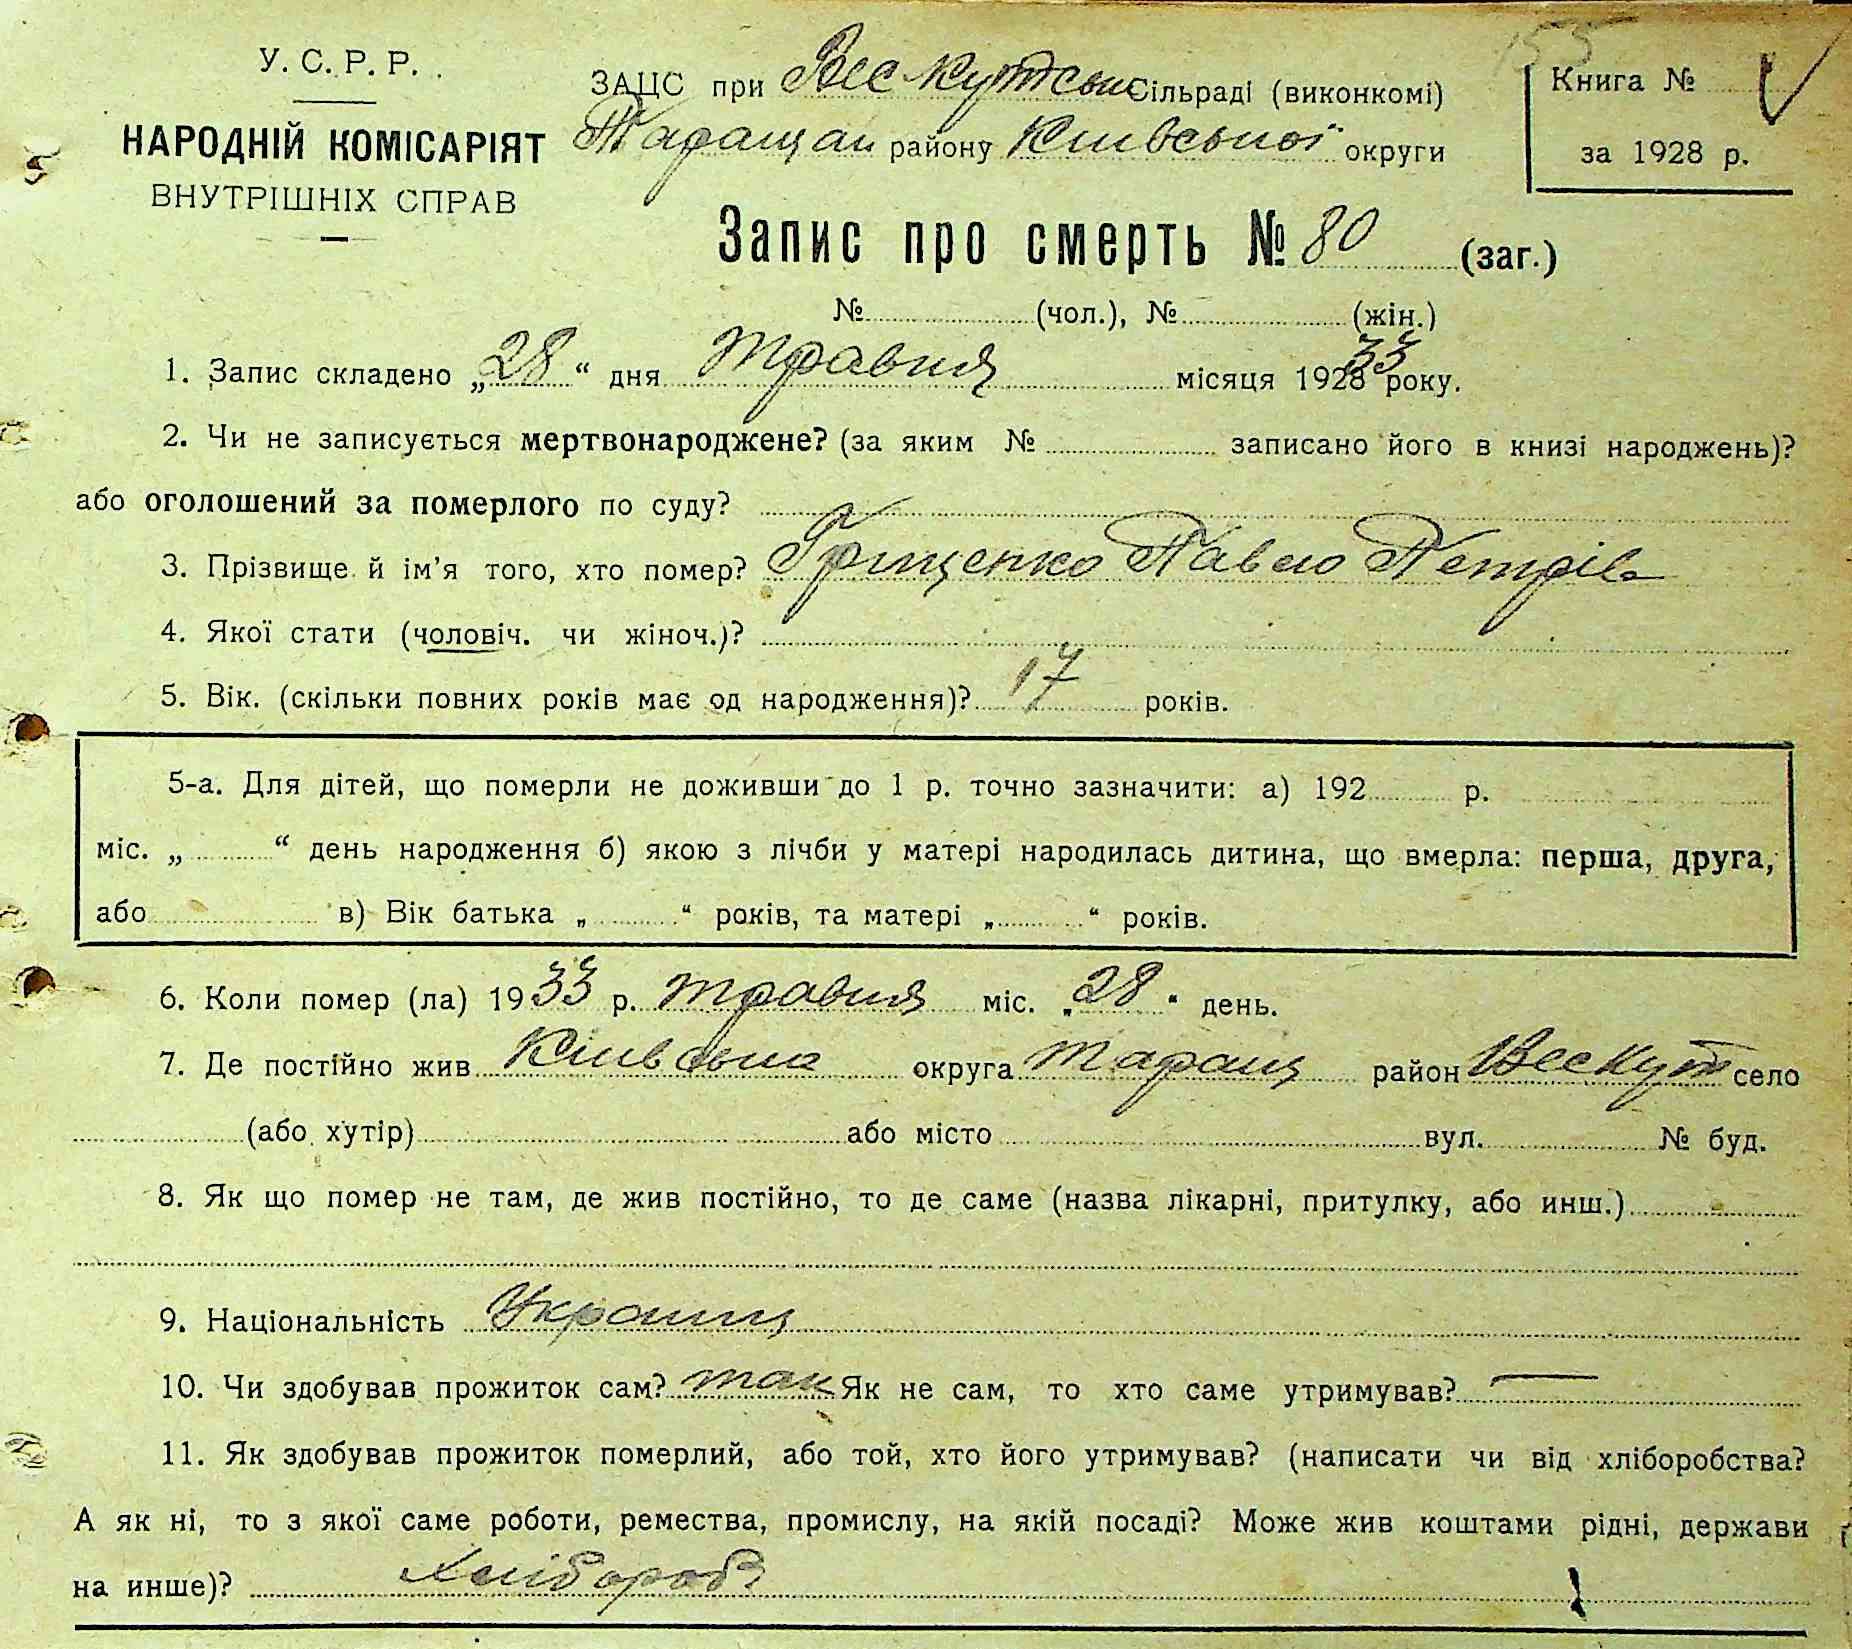 155
У. С. Р. Р.
НАРОДНІЙ КОМІСАРІЯТ
ВНУТРІШНІХ СПРАВ
ЗАЦС при Веc Кутськ Сільраді (виконкомі)
Таращан району Київської округи
Книга №
за 1928 р.
Запис про смерть № 80 (заг.)
№ (чол.), № (жін.)
1. Запис складено „28“ дня травня місяця 1928 33 року.
2. Чи не записується мертвонароджене? (за яким № записано його в книзі народжень)?
або оголошений за померлого по суду?
3. Прізвище й ім’я того, хто помер? Грищенко Павло Петрів
4. Якої стати (чоловіч. чи жіноч.)?
5. Вік. (скільки повних років має од народження)? 17 років.
5-а. Для дітей, що померли не доживши до 1 р. точно зазначити: а) 192 р.
міс. „ “ день народження б) якою з лічби у матері народилась дитина, що вмерла: перша, друга,
або в) Вік батька „ “ років, та матері „ “ років.
6. Коли помер (ла) 1933 р. травня міс. „28“ день.
7. Де постійно жив Київська округа Таращ район Вес Кут село
(або хутір) або місто вул. № буд.
8. Як що помер не там, де жив постійно, то де саме (назва лікарні, притулку, або инш.)
9. Національність Украïнц
10. Чи здобував прожиток сам? так Як не сам, то хто саме утримував? —
11. Як здобував прожиток померлий, або той, хто його утримував? (написати чи від хліборобства?
А як ні, то з якої саме роботи, ремества, промислу, на якій посаді? Може жив коштами рідні, держави
на инше)? Хлібороб